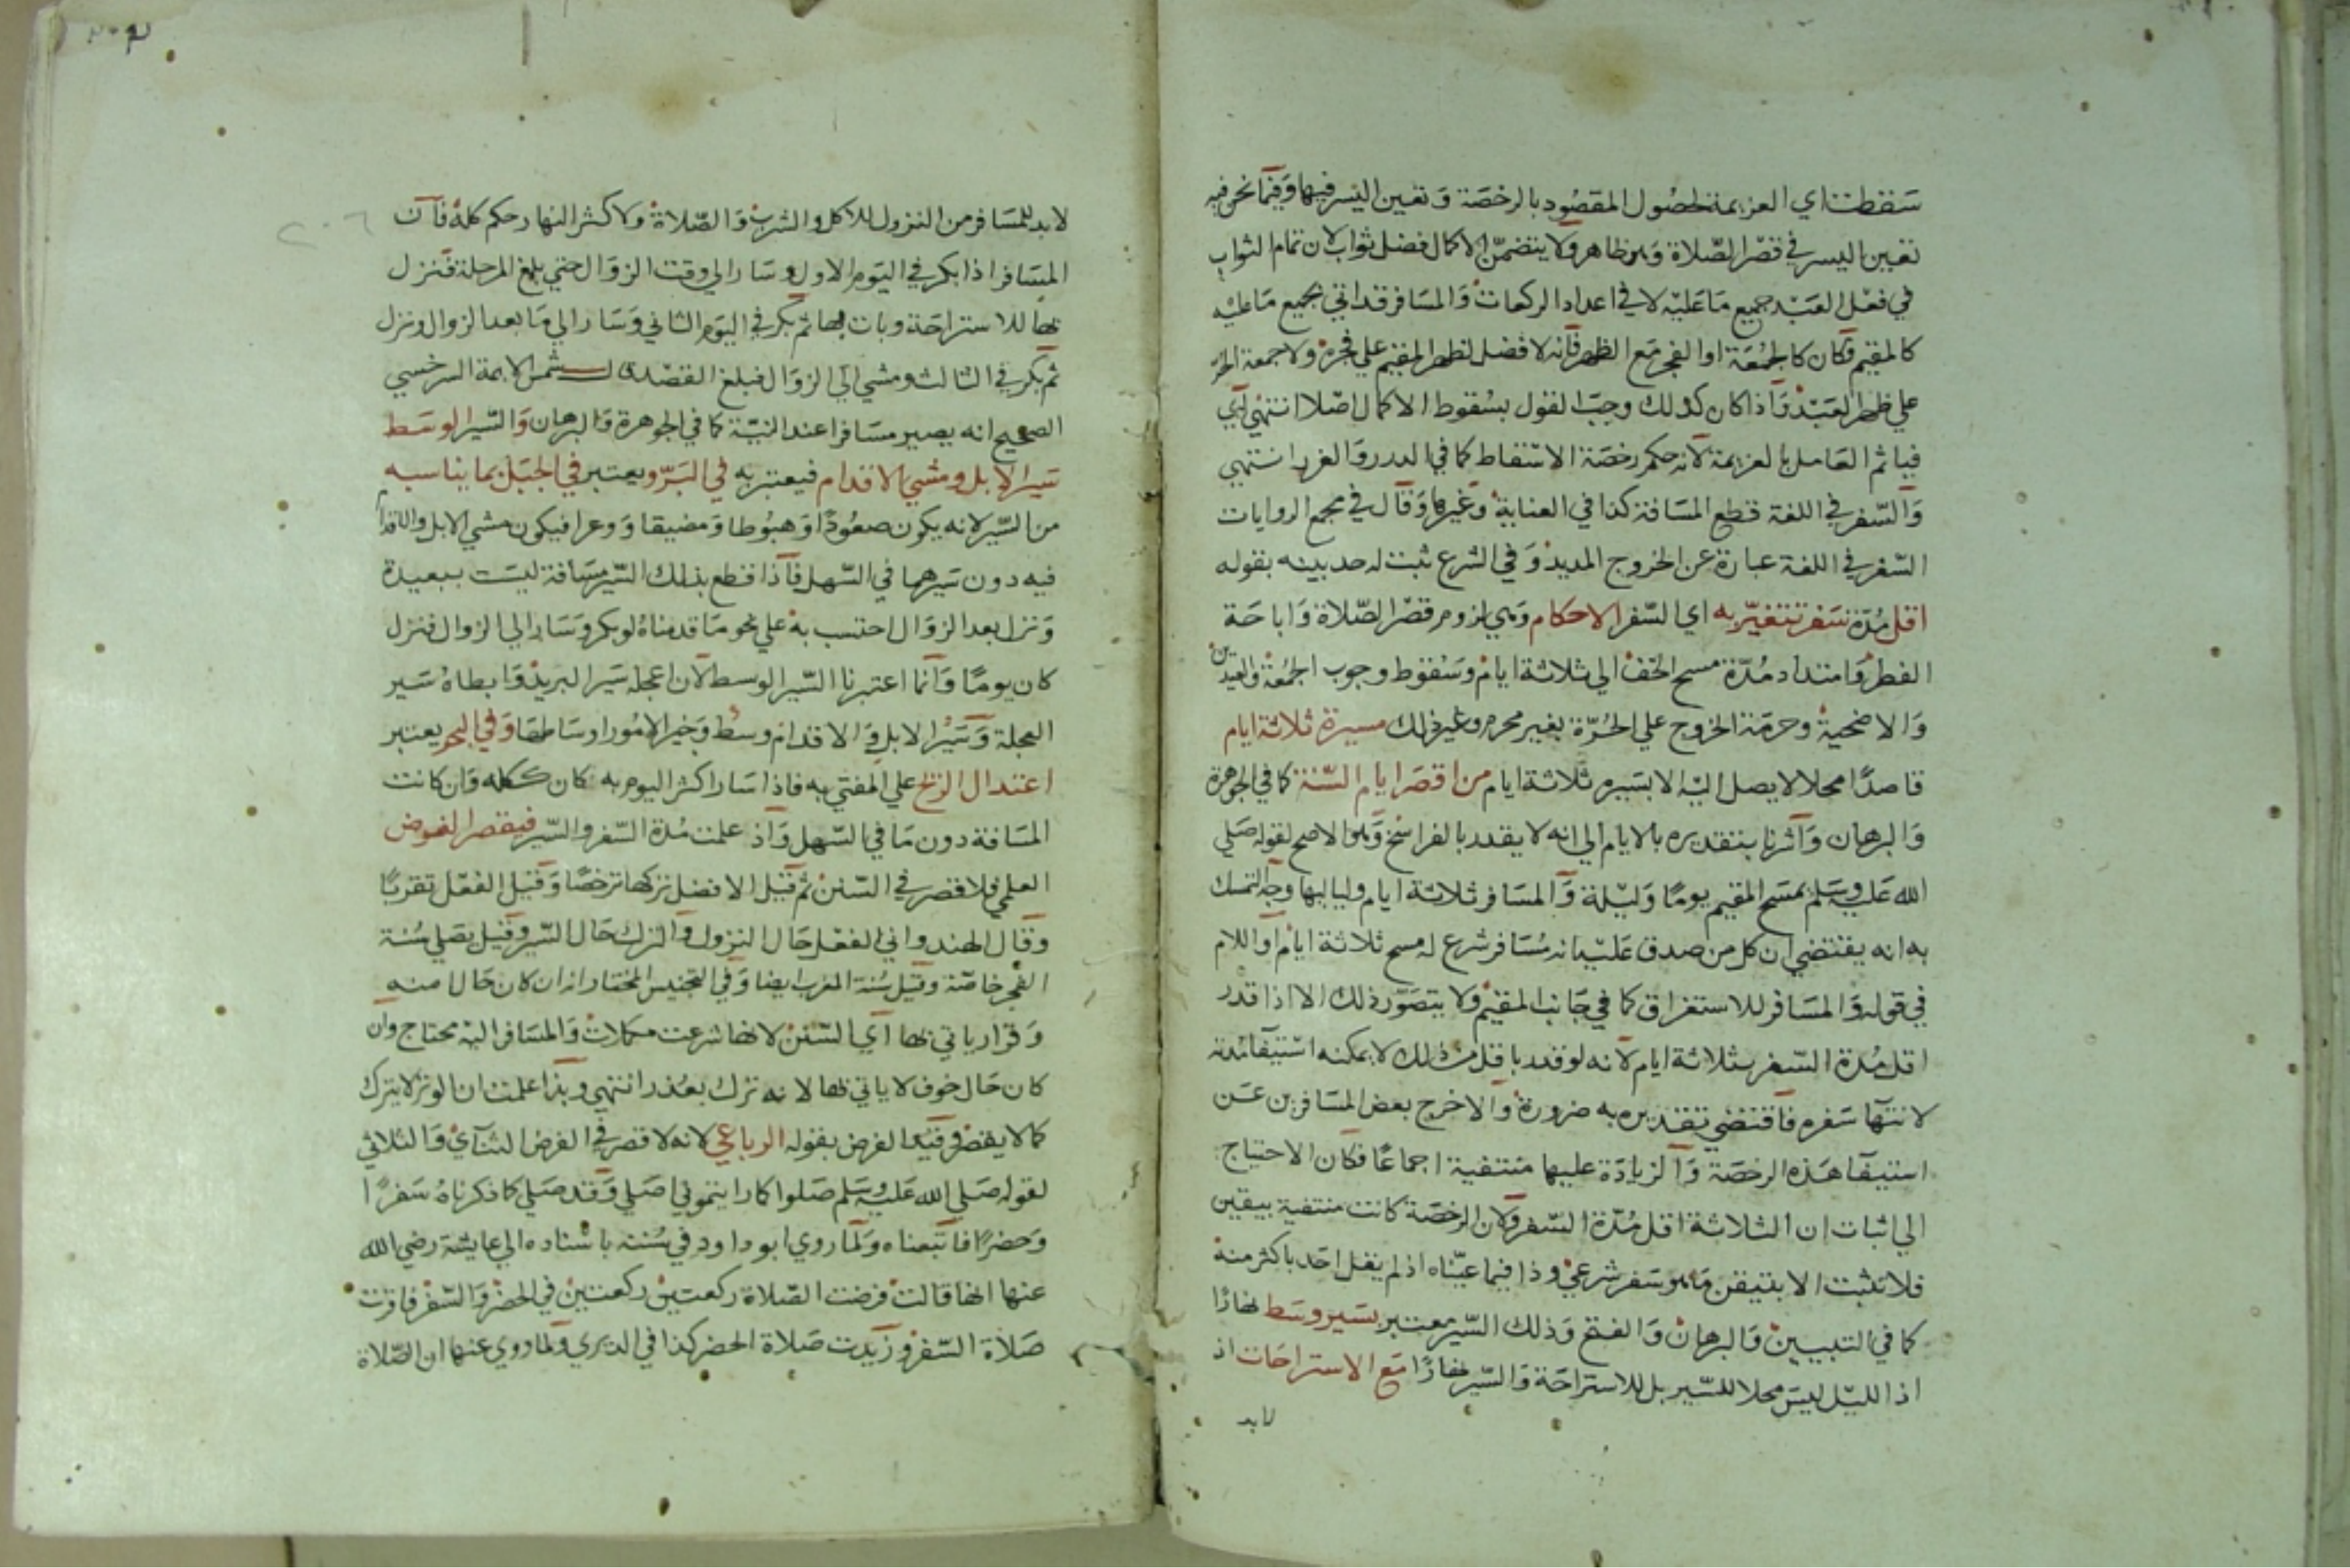 سقطت اي العزيمة لحصول المقصود بالرخصة وتعين اليسر فيها وفيما نحن فيه
تعين اليسر في قصر الصلاة وهو ظاهر ولا يتضمن الاكمال فضل ثواب لان تمام الثواب
في فعل العبد جميع ما عليه لا في اعداد الركعات والمسافر قد اتي بجميع ما عليه
كالمقيم فكان كالجمعة او الفجر مع الظهر فانه لا فضل لظهر المقيم علي فجره ولا جمعة الحر
علي ظهر العبد واذا كان كذلك وجب القول بسقوط الاكمال اصلا انتهي اي
فياثم العامل بالعزيمة لانه حكم رخصة الاسقاط كما في الدرر والغرر انتهي
والسفر في اللغة قطع المسافة كذا في العناية وغيرها وقال في مجمع الروايات
السفر في اللغة عبارة عن الخروج المديد وفي الشرع ثبت له حد بينه بقوله
اقل مدة سفر تتغير به اي السفر الاحكام وهي لزوم قصر الصلاة واباحة
الفطر وامتداد مدة مسح الخف الي ثلاثة ايام وسقوط وجوب الجمعة والعيدين
والاضحية وحرمة الخروج علي الحرة بغير محرم وغير ذلك مسيرة ثلاثة ايام
قاصدا محلا لا يصل اليه الا بسيره ثلاثة ايام من اقصر ايام السنة كما في الجوهرة
والبرهان واشرنا بتقديره بالايام الي انه لا يقدر بالفراسخ وهو الاصح لقوله صلي
الله عليه وسلم يمسح المقيم يوما وليلة والمسافر ثلاثة ايام ولياليها وجه التمسك
به انه يقتضي ان كل من صدق عليه انه مسافر شرع له مسح ثلاثة ايام اذ اللام
في قوله والمسافر للاستغراق كما في جانب المقيم ولا يتصور ذلك الا اذا قدر
اقل مدة السفر بثلاثة ايام لانه لو قدر باقل من ذلك لا يمكنه استيفا مدته
لانتها سفره فاقتضي تقديره به ضرورة والا خرج بعض المسافرين عن
استيفا هذه الرخصة والزيادة عليها منتفية اجماعا فكان الاحتياج
الي اثبات ان الثلاثة اقل مدة السفر ولان الرخصة كانت منتفية بيقين
فلا تثبت الا بتيقن ما هو سفر شرعي وذا فيما عيناه اذ لم يقل احد باكثر منه
كما في التبيين والبرهان والفتح وذلك السير معتبر بسير وسط نهارا
اذ الليل ليس محلا للسير بل للاستراحة والسير نهارا مع الاستراحات اذ
لابد
٢٠٦
لابد للمسافر من النزول للاكل والشرب والصلاة ولاكثر النهار حكم كله فان
المسافر اذا بكر في اليوم الاول وسار الي وقت الزوال حتي بلغ المرحلة فنزل
بها للاستراحة وبات بها ثم بكر في اليوم الثاني وسار الي ما بعد الزوال ونزل
ثم بكر في الثالث ومشي الي الزوال فبلغ القصد قال شمس الايمة السرخسي
الصحيح انه يصير مسافرا عند النية كما في الجوهرة والبرهان والسير الوسط
سير الابل ومشي الاقدام فيعتبر به في البر ويعتبر في الجبل بما يناسبه
من السير لانه يكون صعودا وهبوطا ومضيقا ووعرا فيكون مشي الابل والاقدام
فيه دون سيرهما في السهل فاذا قطع بذلك السير مسافة ليست ببعيدة
ونزل بعد الزوال احتسب به علي نحو ما قدمناه لو بكر وسار الي الزوال فنزل
كان يوما وانما اعتبرنا السير الوسط لان اعجله سير البريد وابطاه سير
العجلة وسير الابل والاقدام وسط وخير الامور اوساطها وفي البحر يعتبر
اعتدال الريح علي المفتي به فاذا سار اكثر اليوم به كان ككله وان كانت
المسافة دون ما في السهل واذ علمت مدة السفر والسير فيقصر الفرض
العلمي فلا قصر في السنن ثم قيل الافضل تركها ترخصا وقيل الفعل تقربا
وقال الهندواني الفعل حال النزول والترك حال السير وقيل يصلي سنة
الفجر خاصة وقيل سنة المغرب ايضا وفي التجنيس المختار انه ان كان حال امنه
وقرار ياتي بها اي السنن لانها شرعت مكملات والمسافر اليه محتاج وان
كان حال خوف لا ياتي بها لانه ترك بعذر انتهي وبذا علمت ان الوتر لا يترك
كما لا يقصر وقيد الفرض بقوله الرباعي لانه لا قصر في الفرض الثنائي والثلاثي
لقوله صلي الله عليه وسلم صلوا كما رايتموني اصلي وقد صلي كما ذكرناه سفرا
وحضرا فاتبعناه ولما روي ابو داود في سننه باسناده الي عايشة رضي الله
عنها انها قالت فرضت الصلاة ركعتين ركعتين في الحضر والسفر فاقرت
صلاة السفر وزيدت صلاة الحضر كذا في الديري ولما روي عنها ان الصلاة